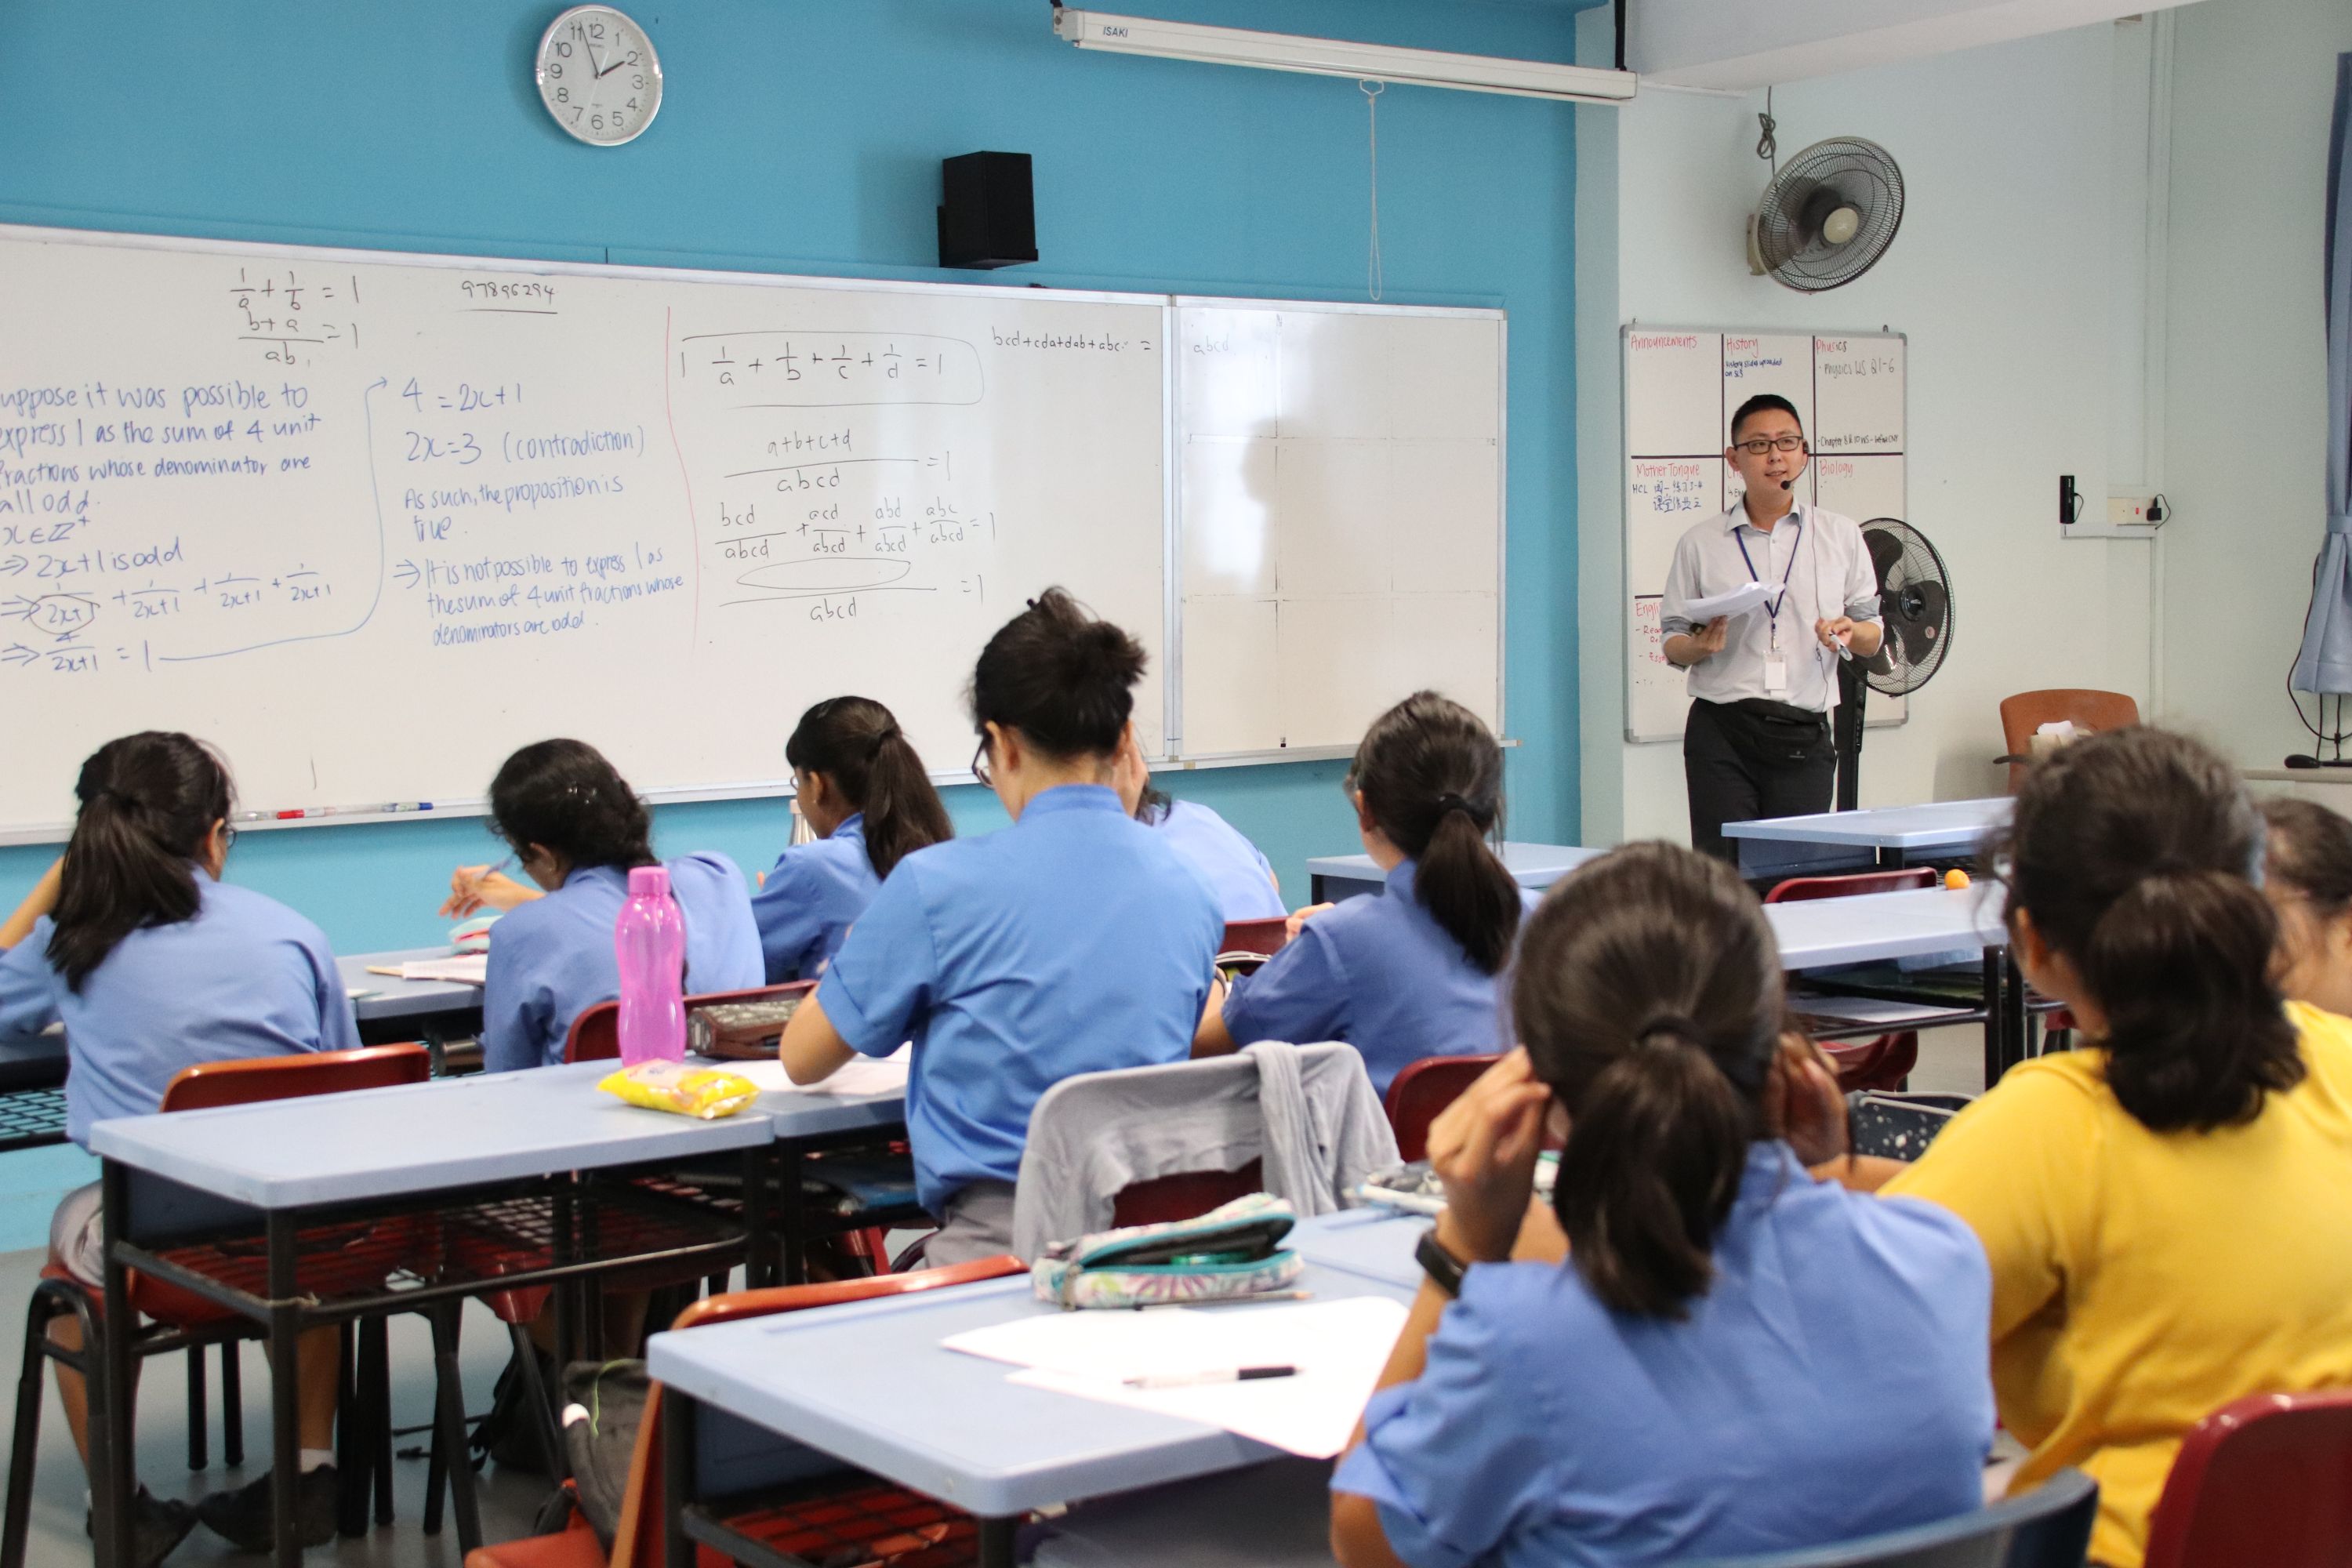 11 12 1
10 2
9 3
8 4
7 6 5
ISAKI
1/a + 1/b = 1
b+a/ab = 1
97896294
uppose it was possible to
express 1 as the sum of 4 unit
fractions whose denominator are
all odd.
x ∈ Z⁺
⇒ 2x+1 is odd
⇒ 1/2x+1 + 1/2x+1 + 1/2x+1 + 1/2x+1
⇒ 4/2x+1 = 1
4 = 2x+1
2x=3 (contradiction)
As such, the proposition is
true.
⇒ It is not possible to express 1 as
the sum of 4 unit fractions whose
denominators are odd.
1/a + 1/b + 1/c + 1/d = 1
a+b+c+d/abcd = 1
bcd/abcd + acd/abcd + abd/abcd + abc/abcd = 1
/abcd = 1
bcd+cda+dab+abc = abcd
Announcements
History
History slides uploaded
on SLS
Physics
- Physics WS Q1-6
Mother Tongue
HCL
Biology